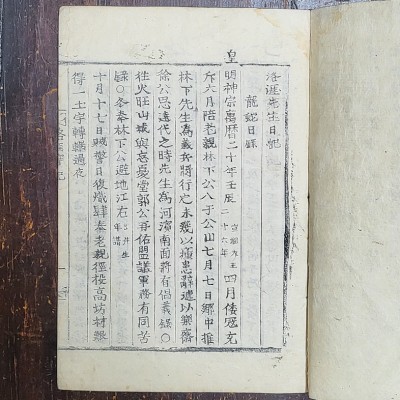 洛涯先生日記
龍蛇日錄
皇
明神宗萬曆二十年壬辰 宣祖大王二十六年 四月倭寇充
斥六月陪老親林下公入于公山七月七日鄉中推
林下先生為義兵將行之未幾以積患辭遞以樂齋
徐公思遠代之時先生為河濱南面將有倡義錄〇
往火旺山城與忘憂堂郭公再佑盟議軍務有同苦
錄〇冬奉林下公避地江右
十月十七日賊警日復熾肆奉老親徑投高坊材
得一土宇轉輾過夜